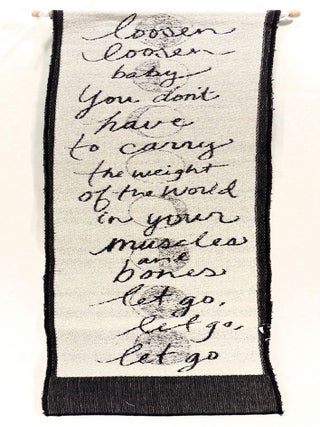 loosen
loosen
baby
you don't
have
to carry
the weight
of the world
in your
muscles
and
bones
let go,
let go,
let go